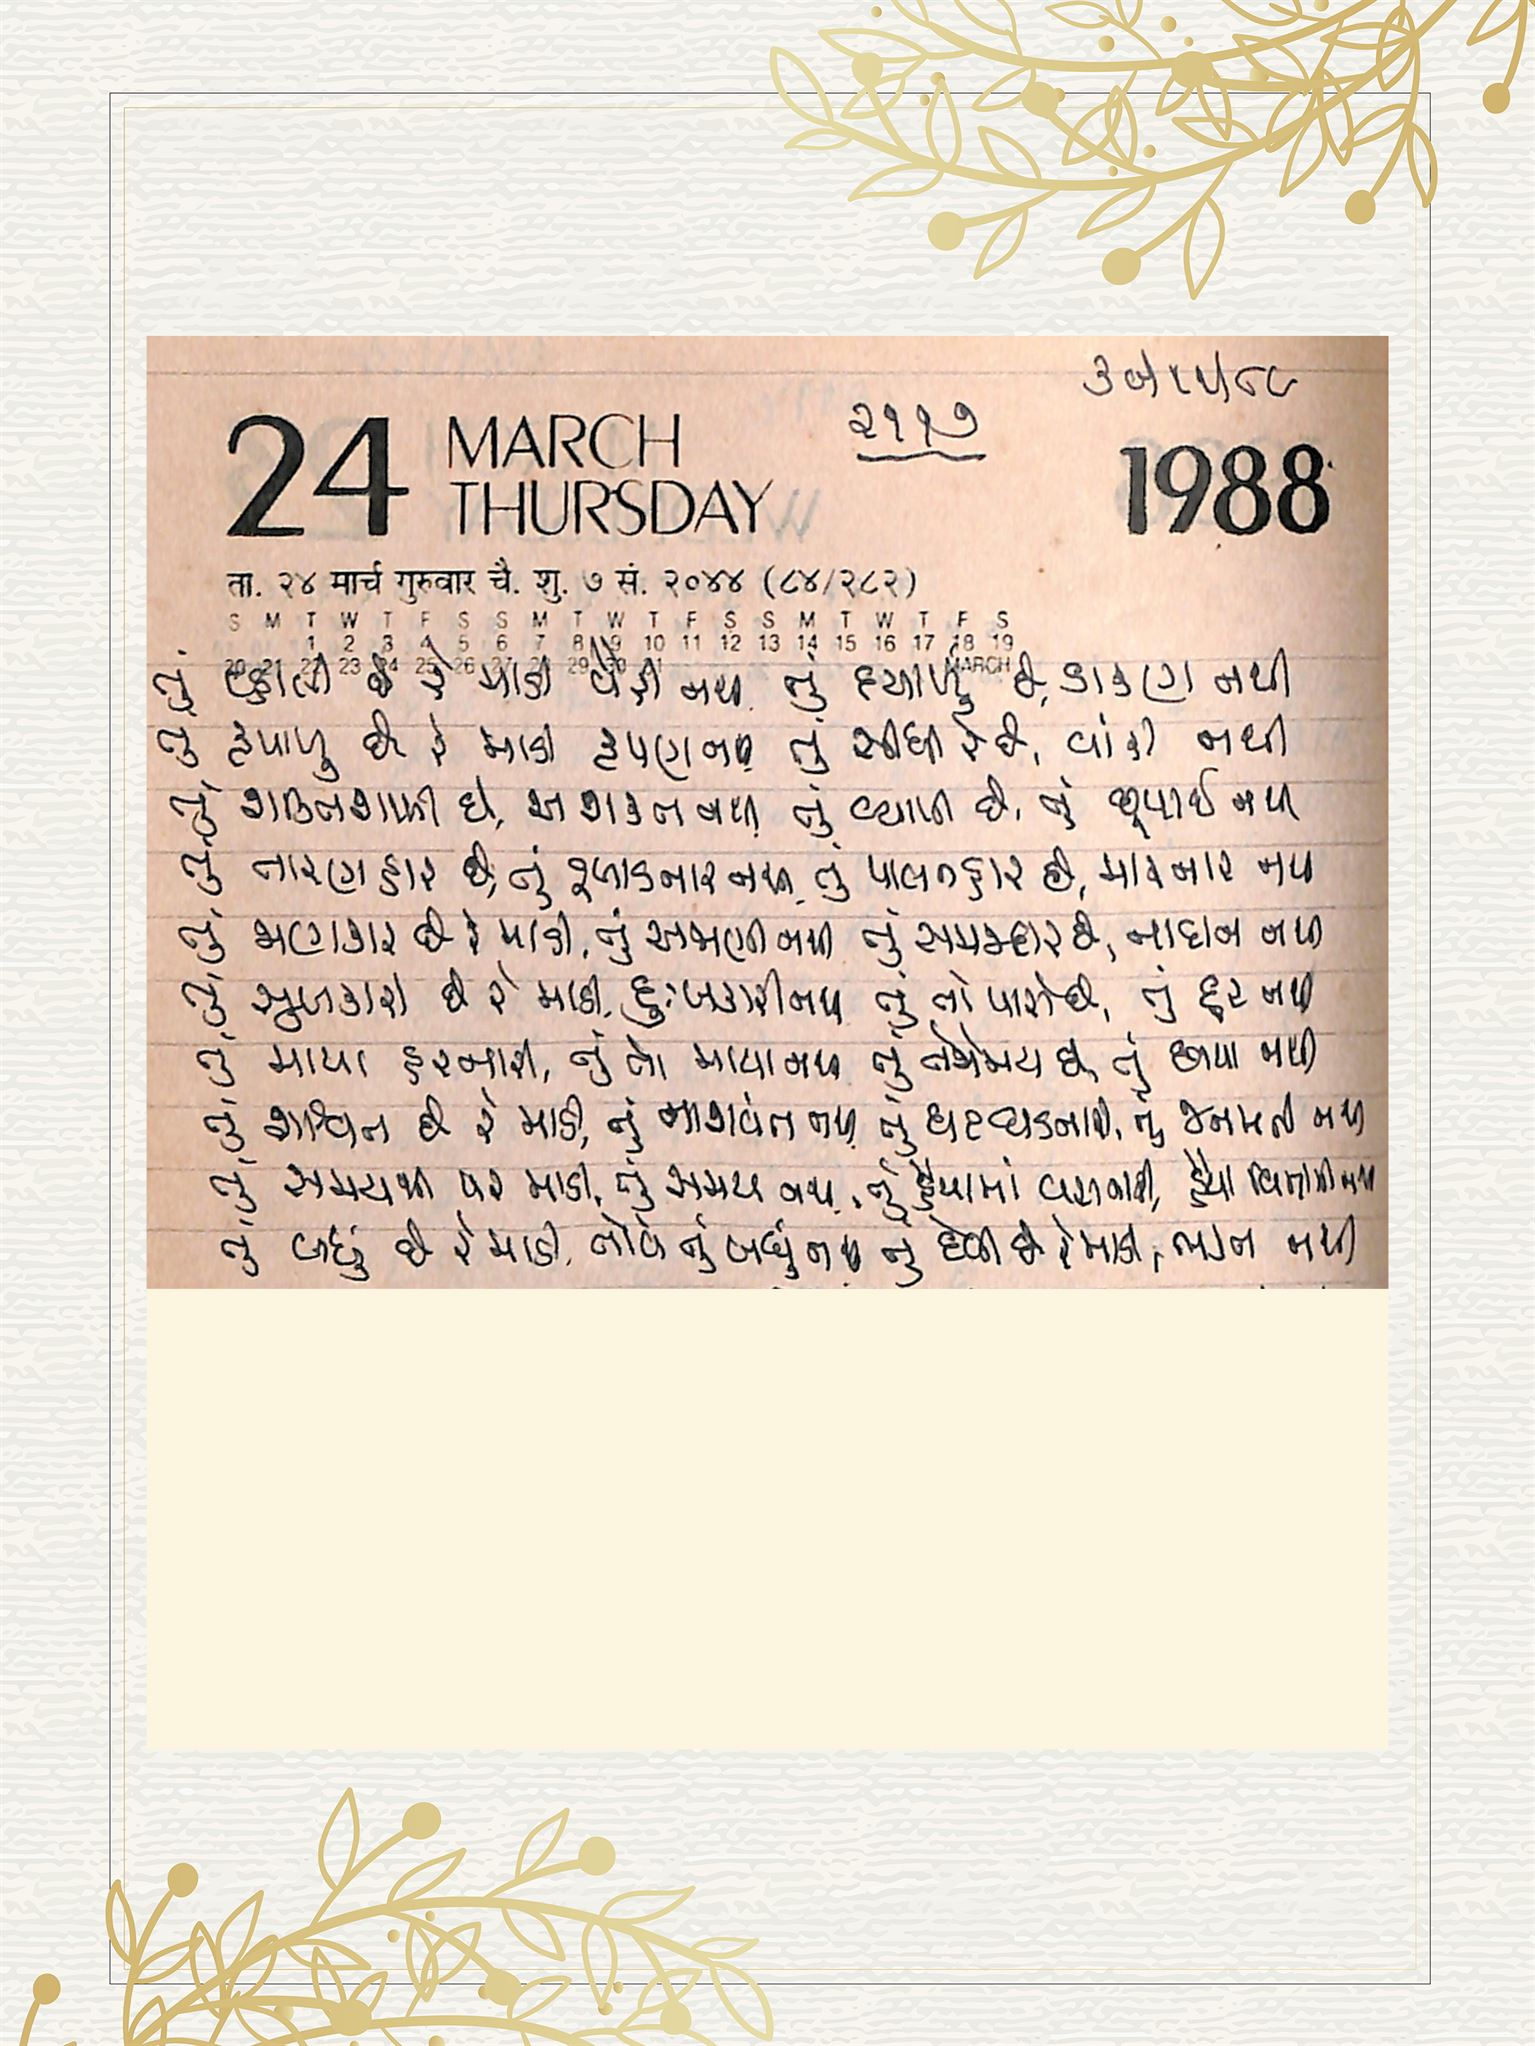 ૩૦/૧૧/૮૮
૨૧૧૭
24 MARCH 1988
THURSDAY
ता. २४ मार्च गुरुवार चै. शु. ७ सं. २०४४ (८४/२८२)
S M T W T F S S M T W T F S S M T W T F S
1 2 3 4 5 6 7 8 9 10 11 12 13 14 15 16 17 18 19
20 21 22 23 24 25 26 27 28 29 30 31 MARCH
તું વ્હાલી છે રે માડી વેરી નથી તું દયાળુ છે, ડાકણ નથી
તું કૃપાળુ છે રે માડી કૃપણ નથી તું સીધી રે છે, વાંકી નથી
તું શકુનશાળી છે, અશકુન નથી તું વ્યાપી છે, તું છૂપાઈ નથી
તું તારણહાર છે, તું ડૂબાડનાર નથી તું પાલનહાર છે, મારનાર નથી
તું જાણકાર છે રે માડી, તું અજાણી નથી તું સમજદાર છે, નાદાન નથી
તું સુખકારી છે રે માડી, દુઃખકારી નથી તું તો પાસે છે, તું દૂર નથી
તું માયા હરનારી, તું તો માયા નથી તું તેજોમય છે, તું છાયા નથી
તું શાશ્વત છે રે માડી, તું નાશવંત નથી તું ઘાટ ઘડનારી, તું જનમતી નથી
તું સમયથી પર માડી, તું સમય નથી, તું હૈયામાં વસનારી, હૈયા વિનાની નથી
તું બધું છે રે માડી, તોયે તું બધું નથી તું દેવી છે રે માડી, નથી